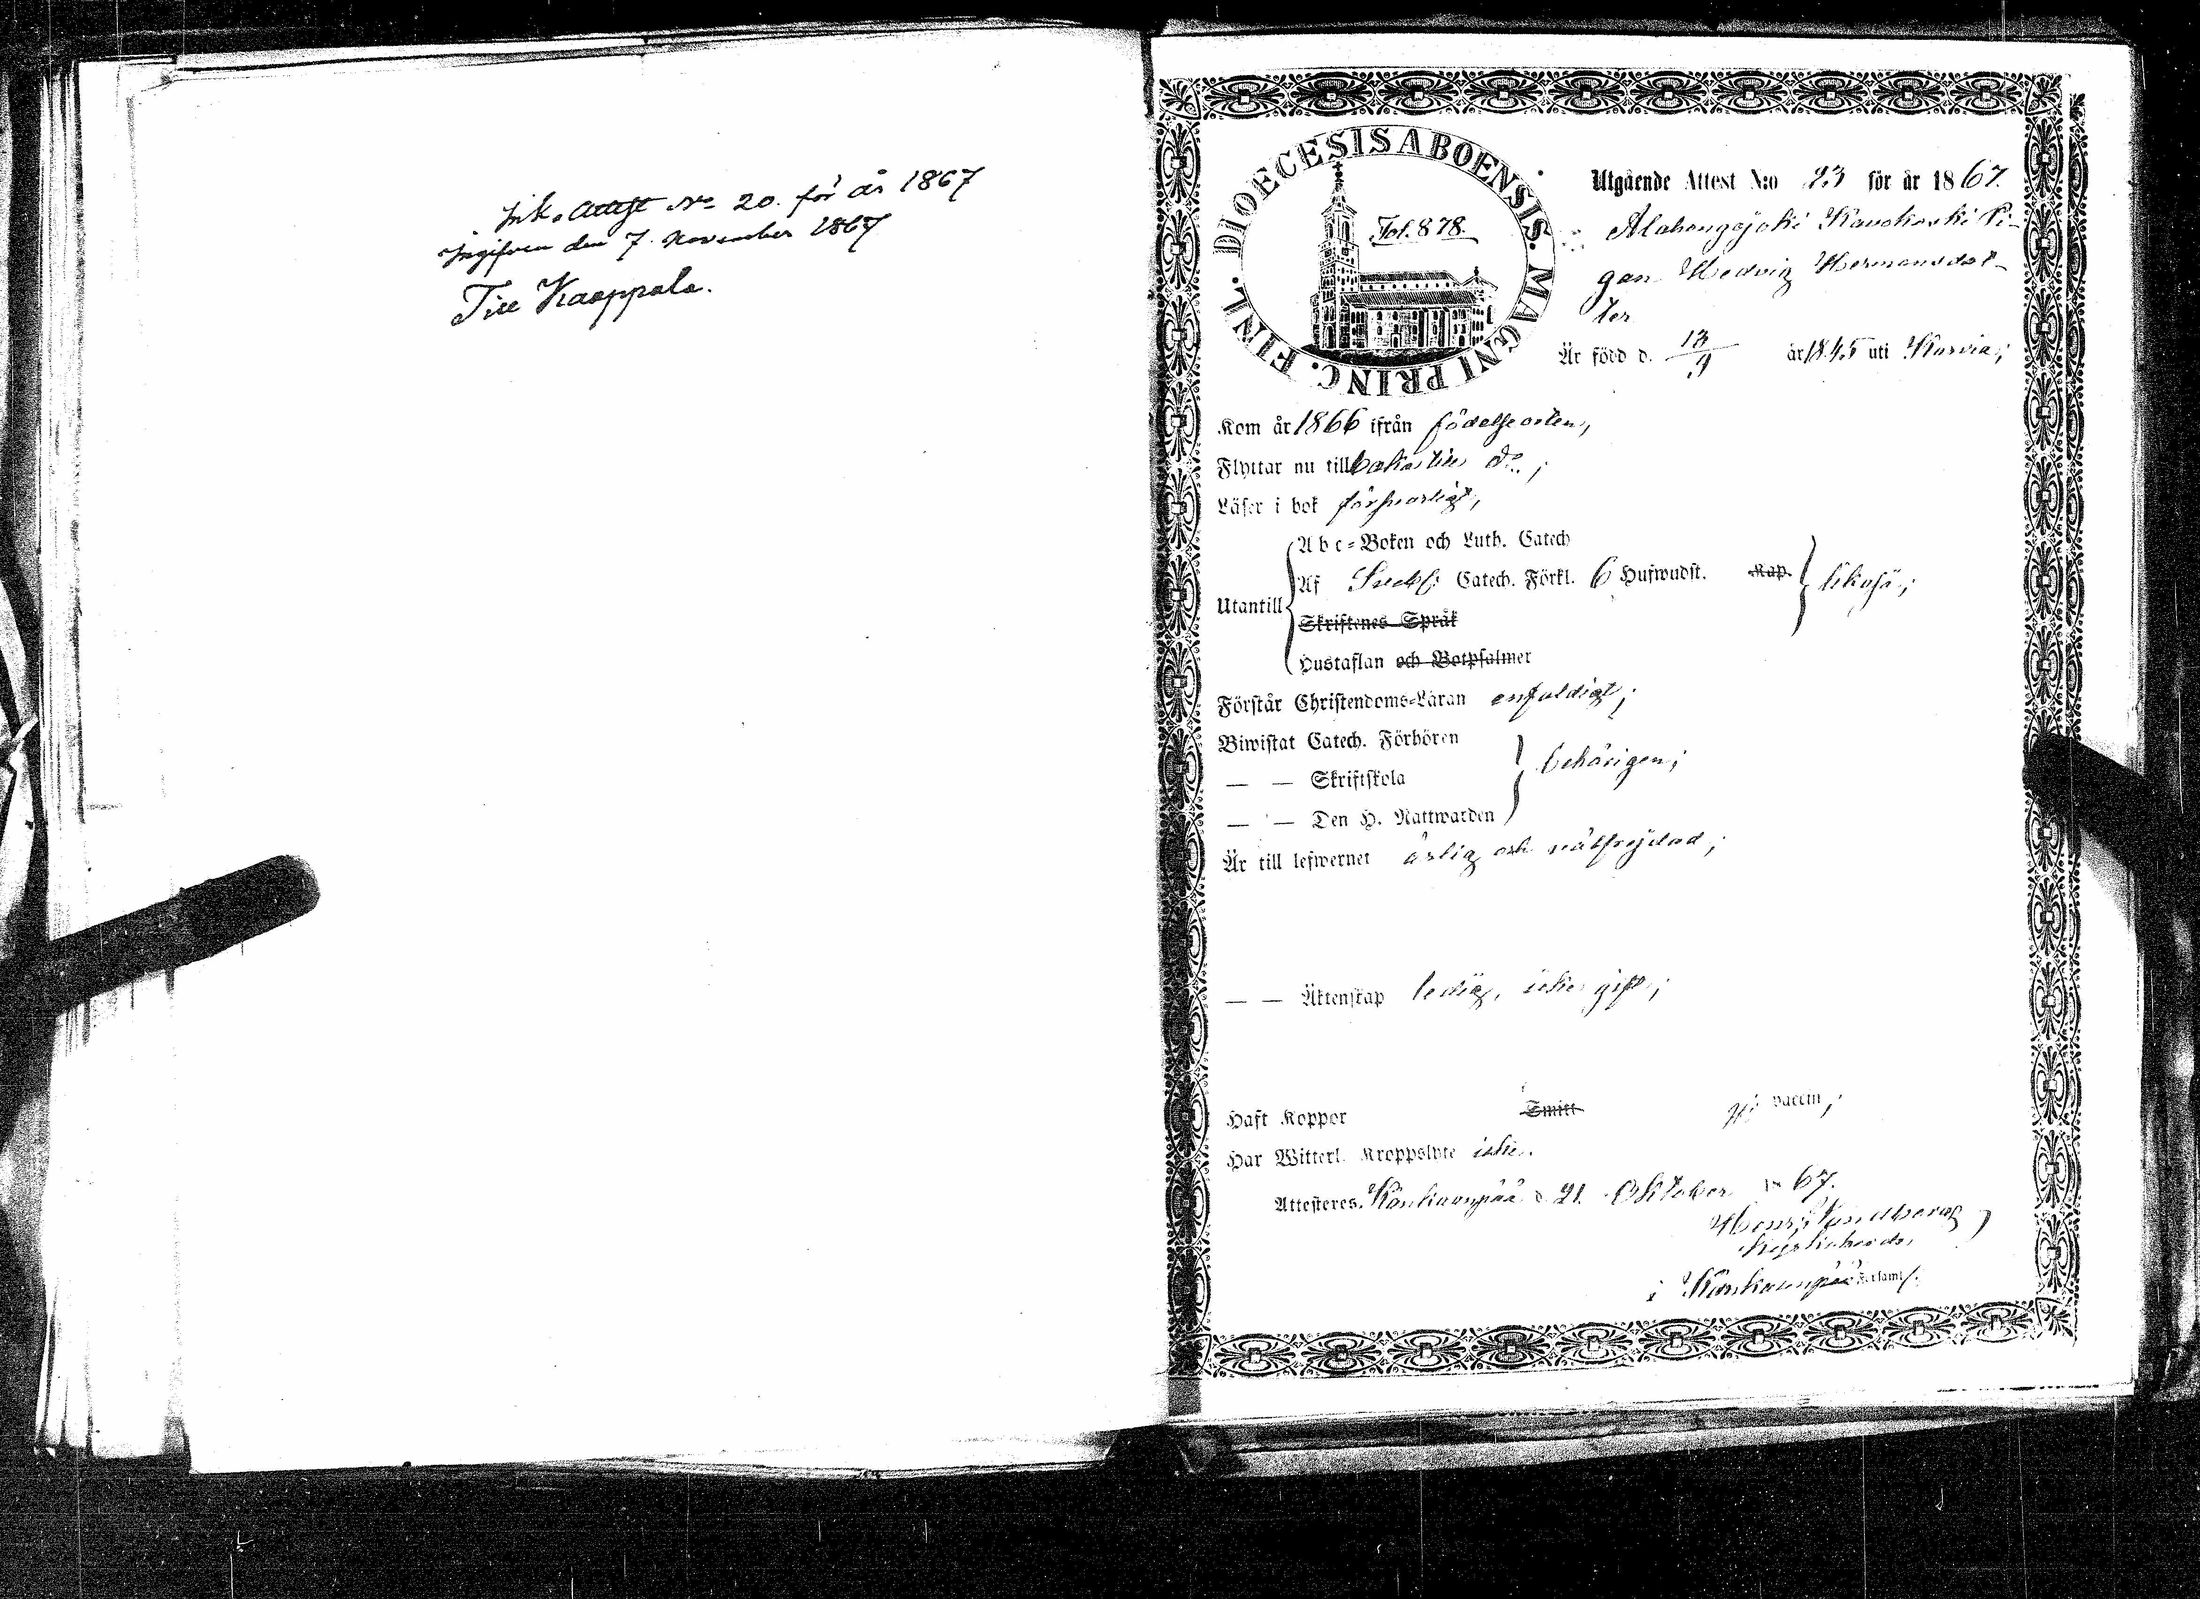 Ink. Attest No 20. för år 1867
Ingifven den 7. November 1867
Till Kaappala.
DIOECESIS ABOENSIS. MAGNI PRINC. FINL.
Fol. 878.
Utgående Attest N:o 23 för år 1867.
Alahongojoki Kauokoski Pi-
gan Hedvig Hermansdot-
ter
Är född d. 13/9 år 1845 uti Karvia;
Kom år 1866 ifrån födelseorten,
Flyttar nu till baka till do;
Läser i bok försvarligt,
Utantill
Abc-Boken och Luth. Catech
Af Sveb: Catech. Förkl. 6 Hufwudst. Kap.
Skriftenes Språk
Hustaflan och Botpsalmer
likaså;
Förstår Christendoms-Läran enfaldigt;
Biwistat Catech. Förhören
— — Skriftskola
— — Den H. Nattwarden
behörigen;
Är till lefwernet ärlig och välfrejdad;
— — Äktenskap ledig, icke gift;
Haft Koppor Smitt vaccin;
Har Witterl. Kroppslyte icke.
Attesteres. Kankaanpää d. 21. Oktober 1867.
Kyrkoherde
i Kankaanpää Församl.